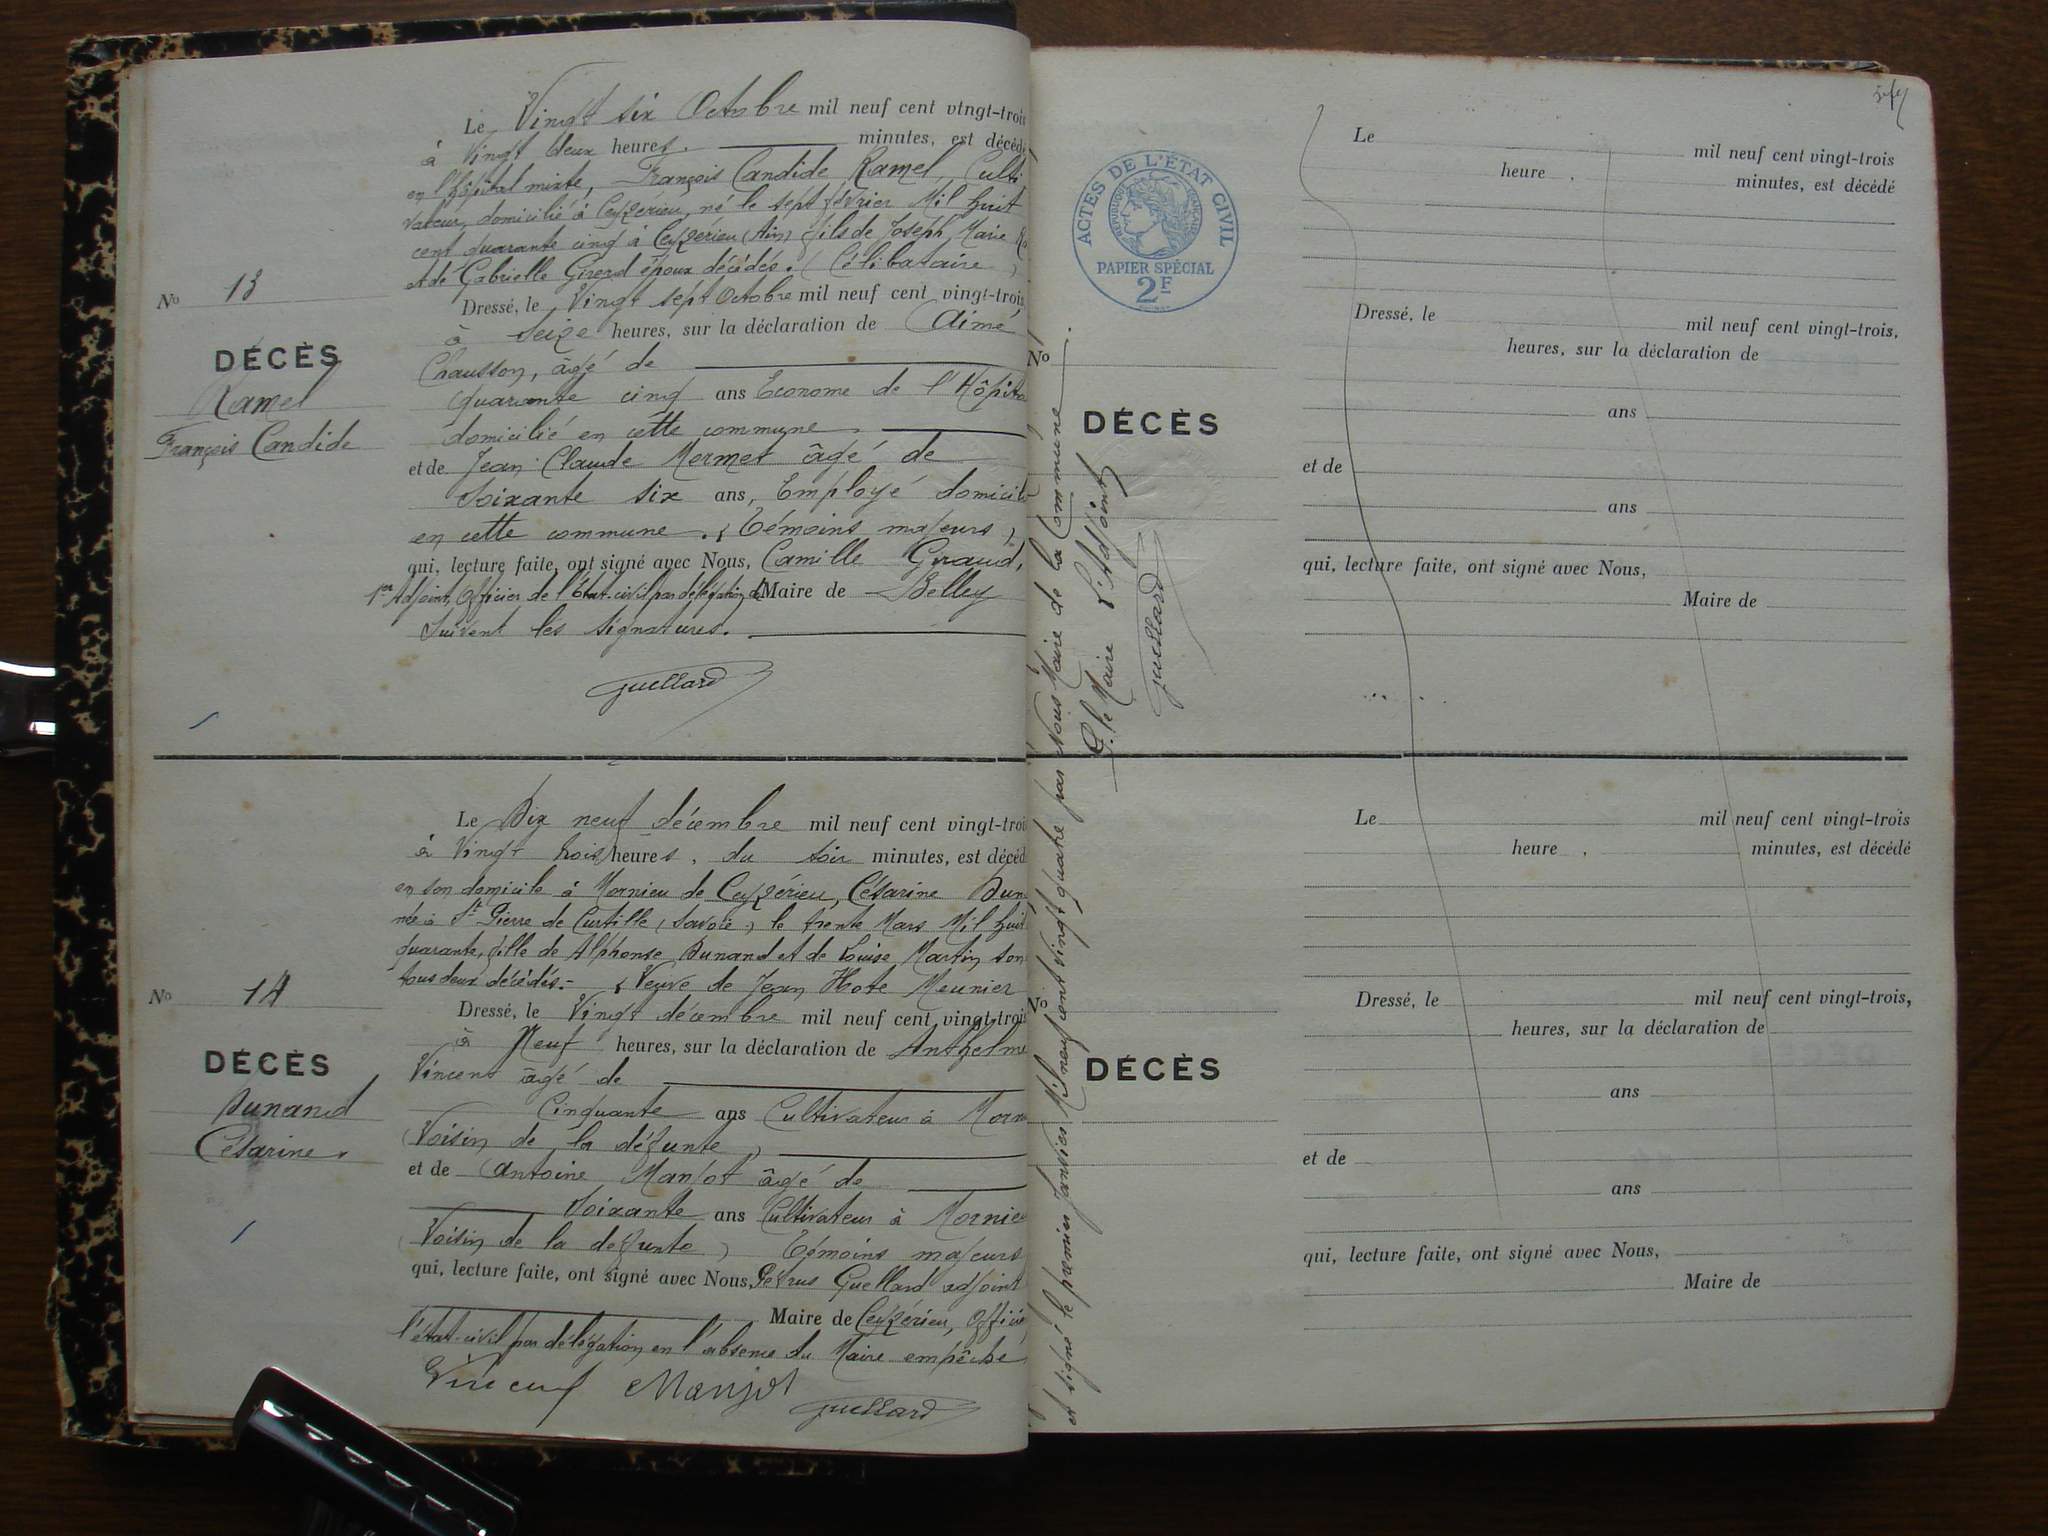 Le Vingt six Octobre mil neuf cent vingt-trois
à Vingt deux heures. minutes, est décédé
en l'hôpital mixte, François Candide Ramel, Culti
vateur, domicilié à Ceyzérieu, né le sept février Mil huit
cent quarante cinq à Ceyzérieu (Ain) fils de Joseph Marie Ra
et de Gabrielle Girerd époux décédés. (Célibataire)
No 13
Dressé, le Vingt sept Octobre mil neuf cent vingt-trois,
à Seize heures, sur la déclaration de Aimé
DÉCÈS
Chausson, âgé de
Ramel
quarante cinq ans Econome de l'Hôpita
François Candide
domicilié en cette commune.
et de Jean Claude Mermet âgé de
Soixante six ans, Employé domicilié
en cette commune. (Témoins majeurs)
qui, lecture faite, ont signé avec Nous, Camille Giraud,
1er Adjoint, Officier de l'Etat-civil par délégation du Maire de Belley
Suivent les signatures.
Guellard
Le Dix neuf décembre mil neuf cent vingt-trois
à Vingt trois heures, du soir minutes, est décéd
en son domicile à Mornieu de Ceyzérieu, Césarine Dun
née à St Pierre de Curtille (Savoie) le trente Mars Mil huit
quarante, fille de Alphonse Dunand et de Louise Martin son
tous deux décédés.- (Veuve de Jean Hote Meunier
No 14
Dressé, le Vingt décembre mil neuf cent vingt-trois
à Neuf heures, sur la déclaration de Anthelme
DÉCÈS
Vincent âgé de
Dunand
Cinquante ans Cultivateur à Morn
Césarine.
(Voisin de la défunte)
et de Antoine Manjot âgé de
Soixante ans Cultivateur à Mornieu
(Voisin de la défunte) Témoins majeurs
qui, lecture faite, ont signé avec Nous, Pétrus Guellard adjoint
Maire de Ceyzérieu, Officie
l'état-civil par délégation en l'absence du Maire empêché
Vincent Manjot
Guellard
ACTES DE L'ÉTAT CIVIL
RÉPUBLIQUE FRANÇAISE
PAPIER SPÉCIAL
2F
Le mil neuf cent vingt-trois
heure . minutes, est décédé
Dressé, le mil neuf cent vingt-trois,
heures, sur la déclaration de
No
DÉCÈS
ans
et de
ans
qui, lecture faite, ont signé avec Nous,
Maire de
et signé le premier Janvier Mil neuf cent vingt quatre par Nous Maire de la Commune.
P. le Maire L'Adjoint
Guellard
Le mil neuf cent vingt-trois
heure . minutes, est décédé
No
Dressé, le mil neuf cent vingt-trois,
heures, sur la déclaration de
DÉCÈS
ans
et de
ans
qui, lecture faite, ont signé avec Nous,
Maire de